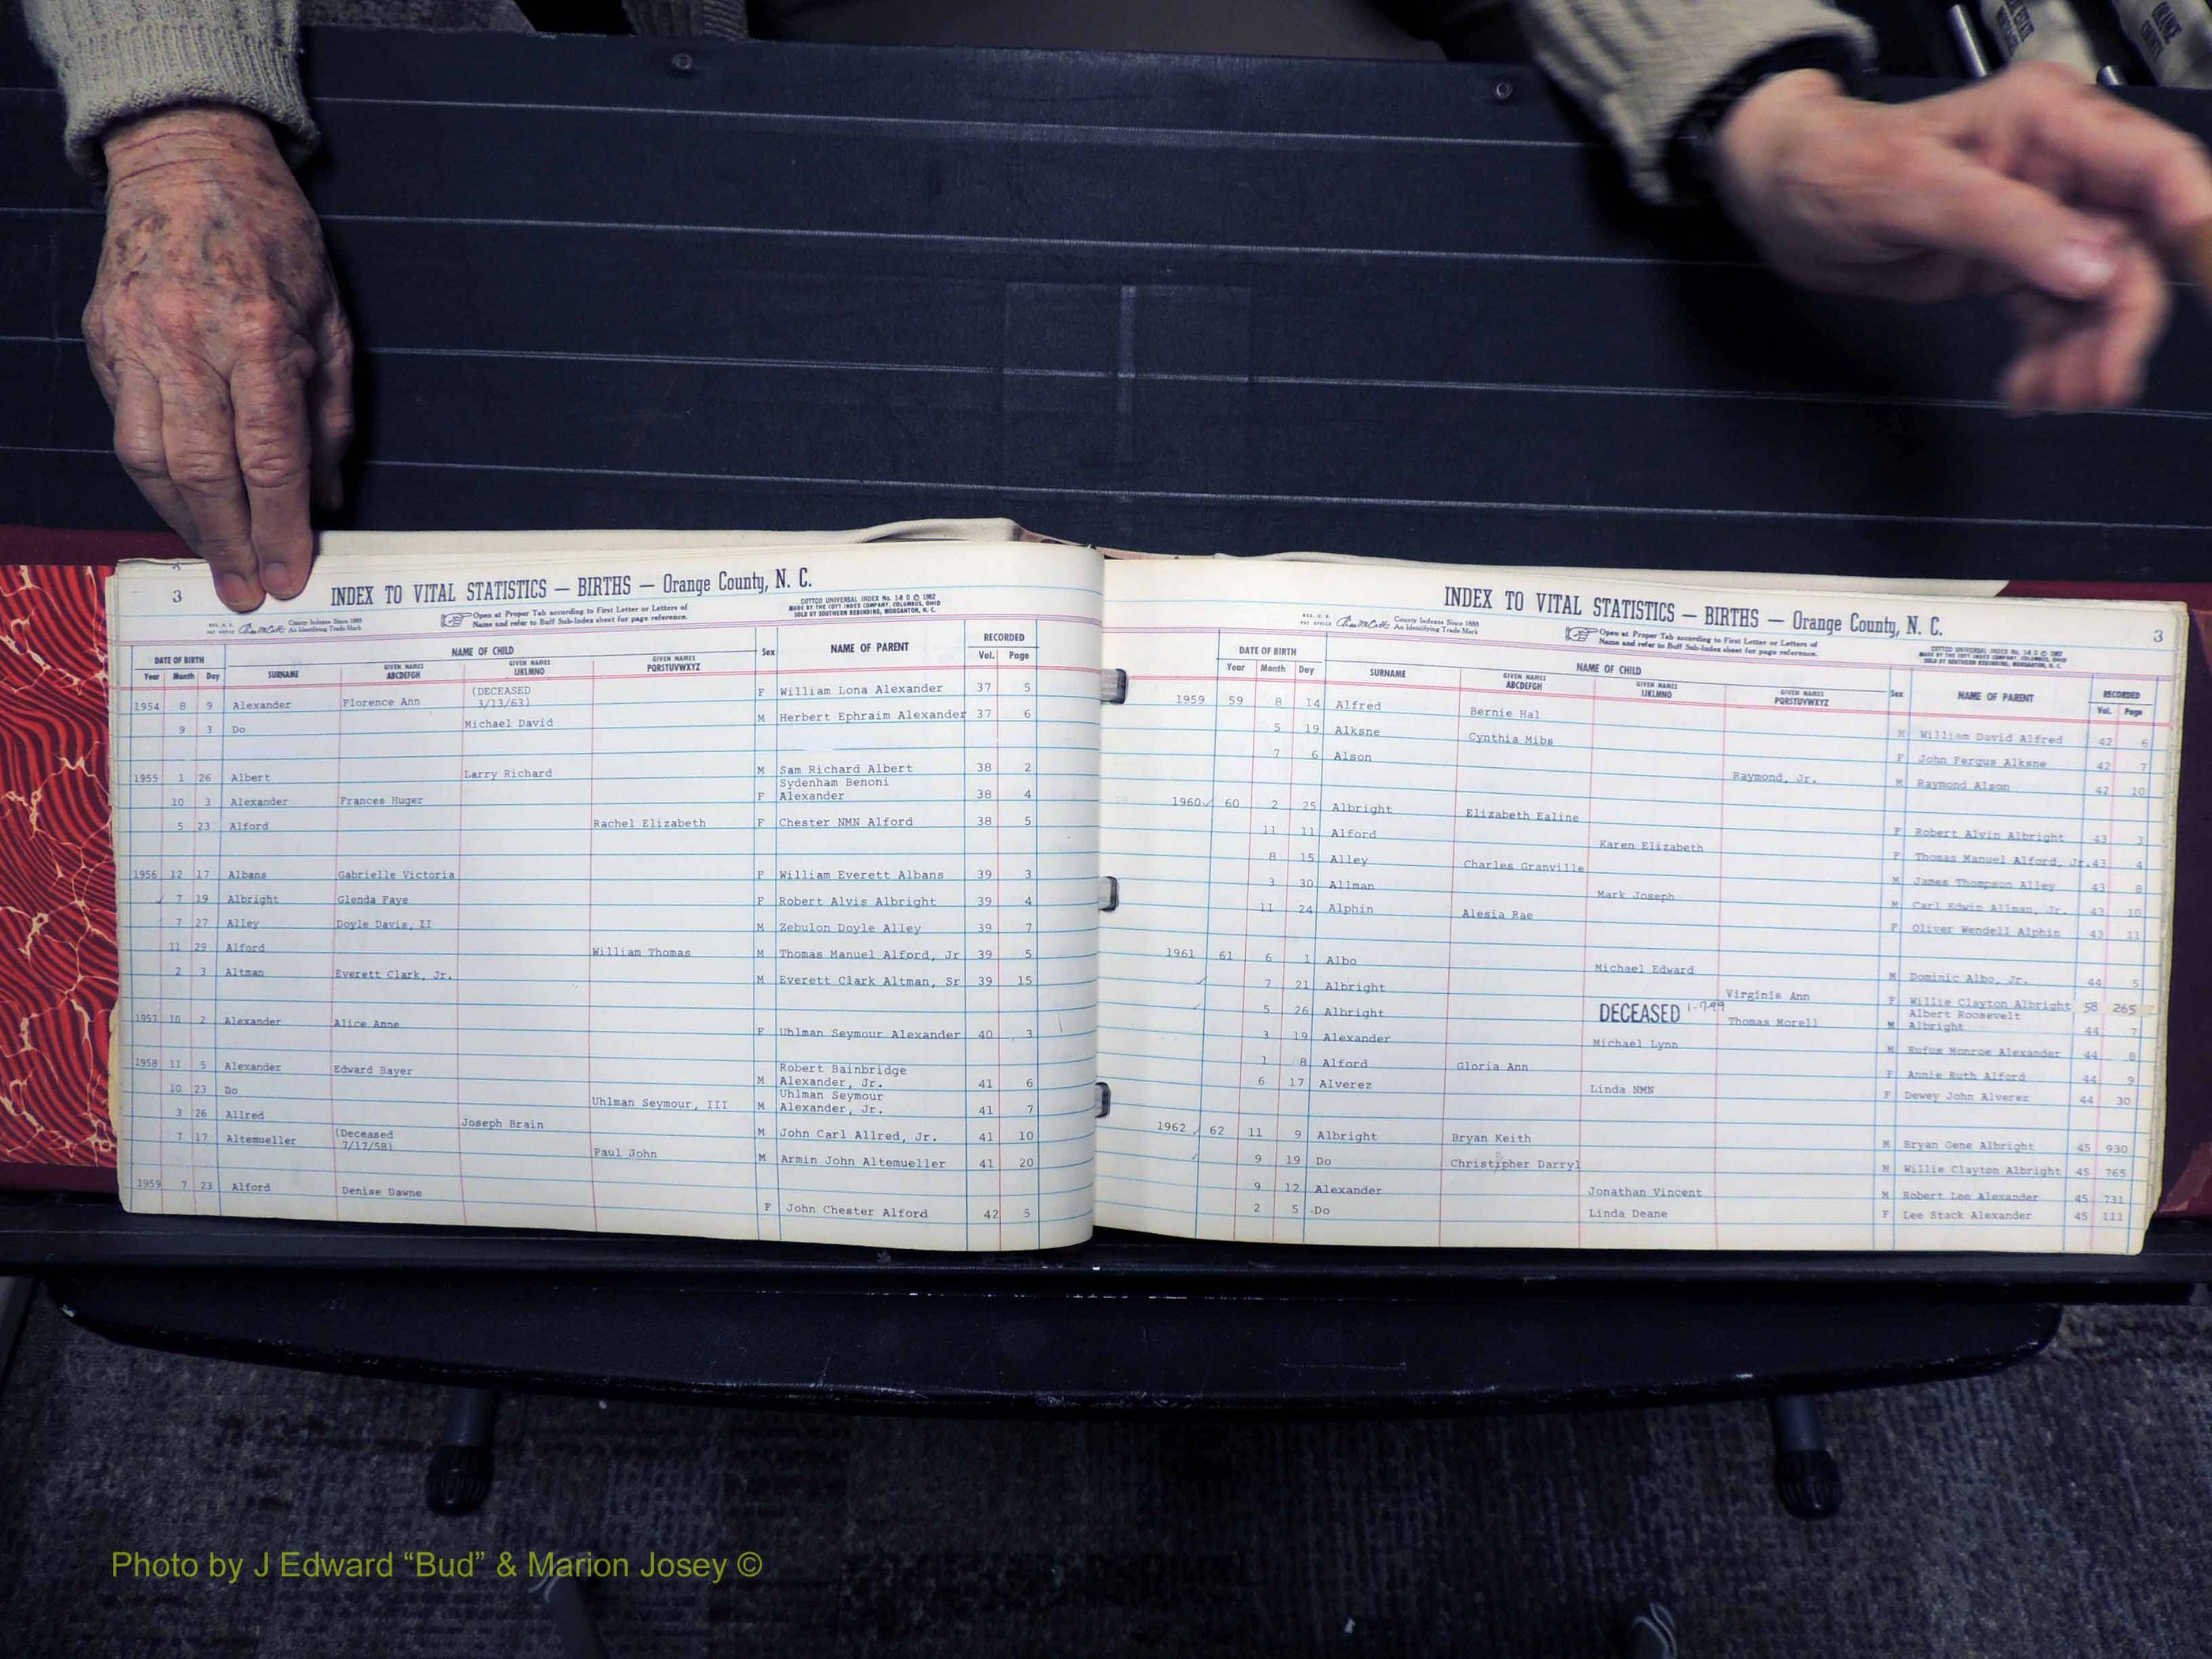 3
INDEX TO VITAL STATISTICS — BIRTHS — Orange County, N. C.
County Indexes Since 1888
An Identifying Trade Mark
Open at Proper Tab according to First Letter or Letters of
Name and refer to Buff Sub-Index sheet for page reference.
COTTCO UNIVERSAL INDEX No. 1-8 D © 1962
MADE BY THE COTT INDEX COMPANY, COLUMBUS, OHIO
SOLD BY SOUTHERN REBINDING, MORGANTON, N. C.
DATE OF BIRTH NAME OF CHILD Sex NAME OF PARENT RECORDED
Year Month Day SURNAME GIVEN NAMES ABCDEFGH GIVEN NAMES IJKLMNO GIVEN NAMES PQRSTUVWXYZ Vol. Page
1954 8 9 Alexander Florence Ann (DECEASED 3/13/63) F William Lona Alexander 37 5
9 3 Do Michael David M Herbert Ephraim Alexander 37 6
1955 1 26 Albert Larry Richard M Sam Richard Albert 38 2
10 3 Alexander Frances Huger F Sydenham Benoni Alexander 38 4
5 23 Alford Rachel Elizabeth F Chester NMN Alford 38 5
1956 12 17 Albans Gabrielle Victoria F William Everett Albans 39 3
7 19 Albright Glenda Faye F Robert Alvis Albright 39 4
7 27 Alley Doyle Davis, II M Zebulon Doyle Alley 39 7
11 29 Alford William Thomas M Thomas Manuel Alford, Jr 39 5
2 3 Altman Everett Clark, Jr. M Everett Clark Altman, Sr 39 15
1957 10 2 Alexander Alice Anne F Uhlman Seymour Alexander 40 3
1958 11 5 Alexander Edward Bayer M Robert Bainbridge Alexander, Jr. 41 6
10 23 Do Uhlman Seymour, III M Uhlman Seymour Alexander, Jr. 41 7
3 26 Allred Joseph Brain M John Carl Allred, Jr. 41 10
7 17 Altemueller (Deceased 7/17/58) Paul John M Armin John Altemueller 41 20
1959 7 23 Alford Denise Dawne F John Chester Alford 42 5
INDEX TO VITAL STATISTICS — BIRTHS — Orange County, N. C.
3
County Indexes Since 1888
An Identifying Trade Mark
Open at Proper Tab according to First Letter or Letters of
Name and refer to Buff Sub-Index sheet for page reference.
DATE OF BIRTH NAME OF CHILD Sex NAME OF PARENT RECORDED
Year Month Day SURNAME GIVEN NAMES ABCDEFGH GIVEN NAMES IJKLMNO GIVEN NAMES PQRSTUVWXYZ Vol. Page
1959 59 8 14 Alfred Bernie Hal M William David Alfred 42 6
5 19 Alksne Cynthia Mibs F John Fergus Alksne 42 7
7 6 Alson Raymond, Jr. M Raymond Alson 42 10
1960 60 2 25 Albright Elizabeth Ealine F Robert Alvin Albright 43 3
11 11 Alford Karen Elizabeth F Thomas Manuel Alford, Jr. 43 4
8 15 Alley Charles Granville M James Thompson Alley 43 8
3 30 Allman Mark Joseph M Carl Edwin Allman, Jr. 43 10
11 24 Alphin Alesia Rae F Oliver Wendell Alphin 43 11
1961 61 6 1 Albo Michael Edward M Dominic Albo, Jr. 44 5
7 21 Albright Virginia Ann F Willie Clayton Albright 58 265
5 26 Albright DECEASED Thomas Morell M Albert Roosevelt Albright 44 7
3 19 Alexander Michael Lynn M Rufus Monroe Alexander 44 8
1 8 Alford Gloria Ann F Annie Ruth Alford 44 9
6 17 Alverez Linda NMN F Dewey John Alverez 44 30
1962 62 11 9 Albright Bryan Keith M Bryan Gene Albright 45 930
9 19 Do Christipher Darryl M Willie Clayton Albright 45 765
9 12 Alexander Jonathan Vincent M Robert Lee Alexander 45 731
2 5 Do Linda Deane F Lee Stack Alexander 45 111
Photo by J Edward “Bud” & Marion Josey ©